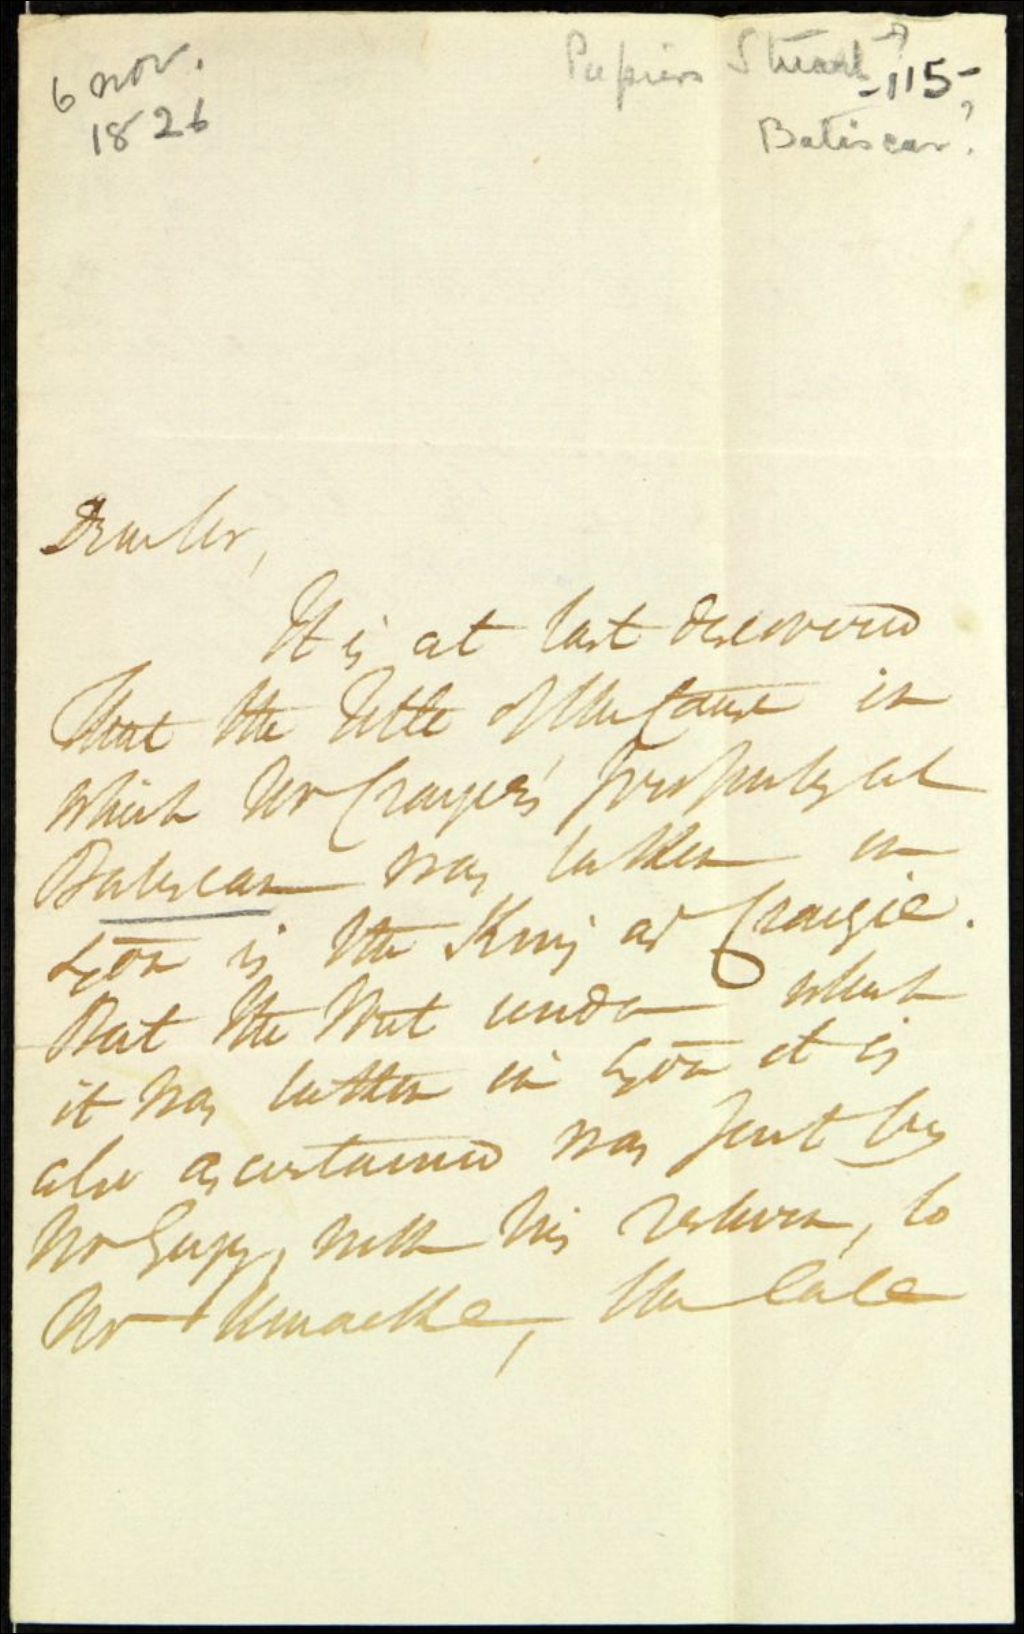 6 nov.
1826
Papiers Stuart?
-115-
Batiscan?
Dear Sir,
It is at last discovered
that the Title of the Cause in
which Mr Craigie's property at
Batiscan was taken in
Exōn is the King at Craigie.
But the Writ under which
it was taken in Exōn it is
also ascertained was sent by
Mr Gugy, with his return, to
Mr the late